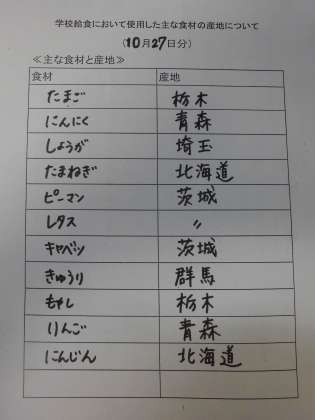 学校給食において使用した主な食材の産地について
(10月27日分)
≪主な食材と産地≫
食材 産地
たまご 栃木
にんにく 青森
しょうが 埼玉
たまねぎ 北海道
ピーマン 茨城
レタス 〃
キャベツ 茨城
きゅうり 群馬
もやし 栃木
りんご 青森
にんじん 北海道